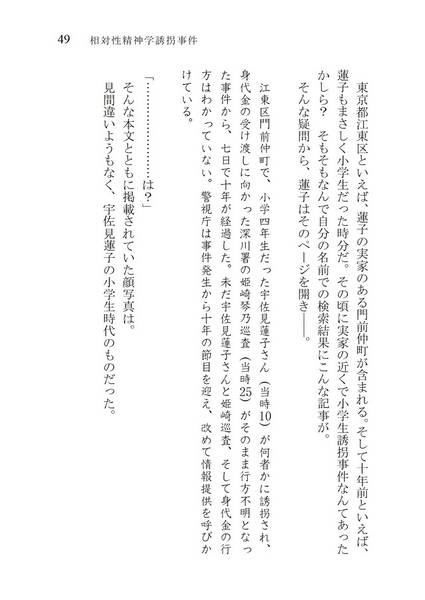 49　相対性精神学誘拐事件
　東京都江東区といえば、蓮子の実家のある門前仲町が含まれる。そして十年前といえば、
蓮子もまさしく小学生だった時分だ。その頃に実家の近くで小学生誘拐事件なんてあった
かしら？　そもそもなんで自分の名前での検索結果にこんな記事が。
　そんな疑問から、蓮子はそのページを開き――。
　江東区門前仲町で、小学四年生だった宇佐見蓮子さん（当時10）が何者かに誘拐され、
身代金の受け渡しに向かった深川署の姫崎琴乃巡査（当時25）がそのまま行方不明となっ
た事件から、七日で十年が経過した。未だ宇佐見蓮子さんと姫崎巡査、そして身代金の行
方はわかっていない。警視庁は事件発生から十年の節目を迎え、改めて情報提供を呼びか
けている。
「……………………は？」
　そんな本文とともに掲載されていた顔写真は。
　見間違いようもなく、宇佐見蓮子の小学生時代のものだった。